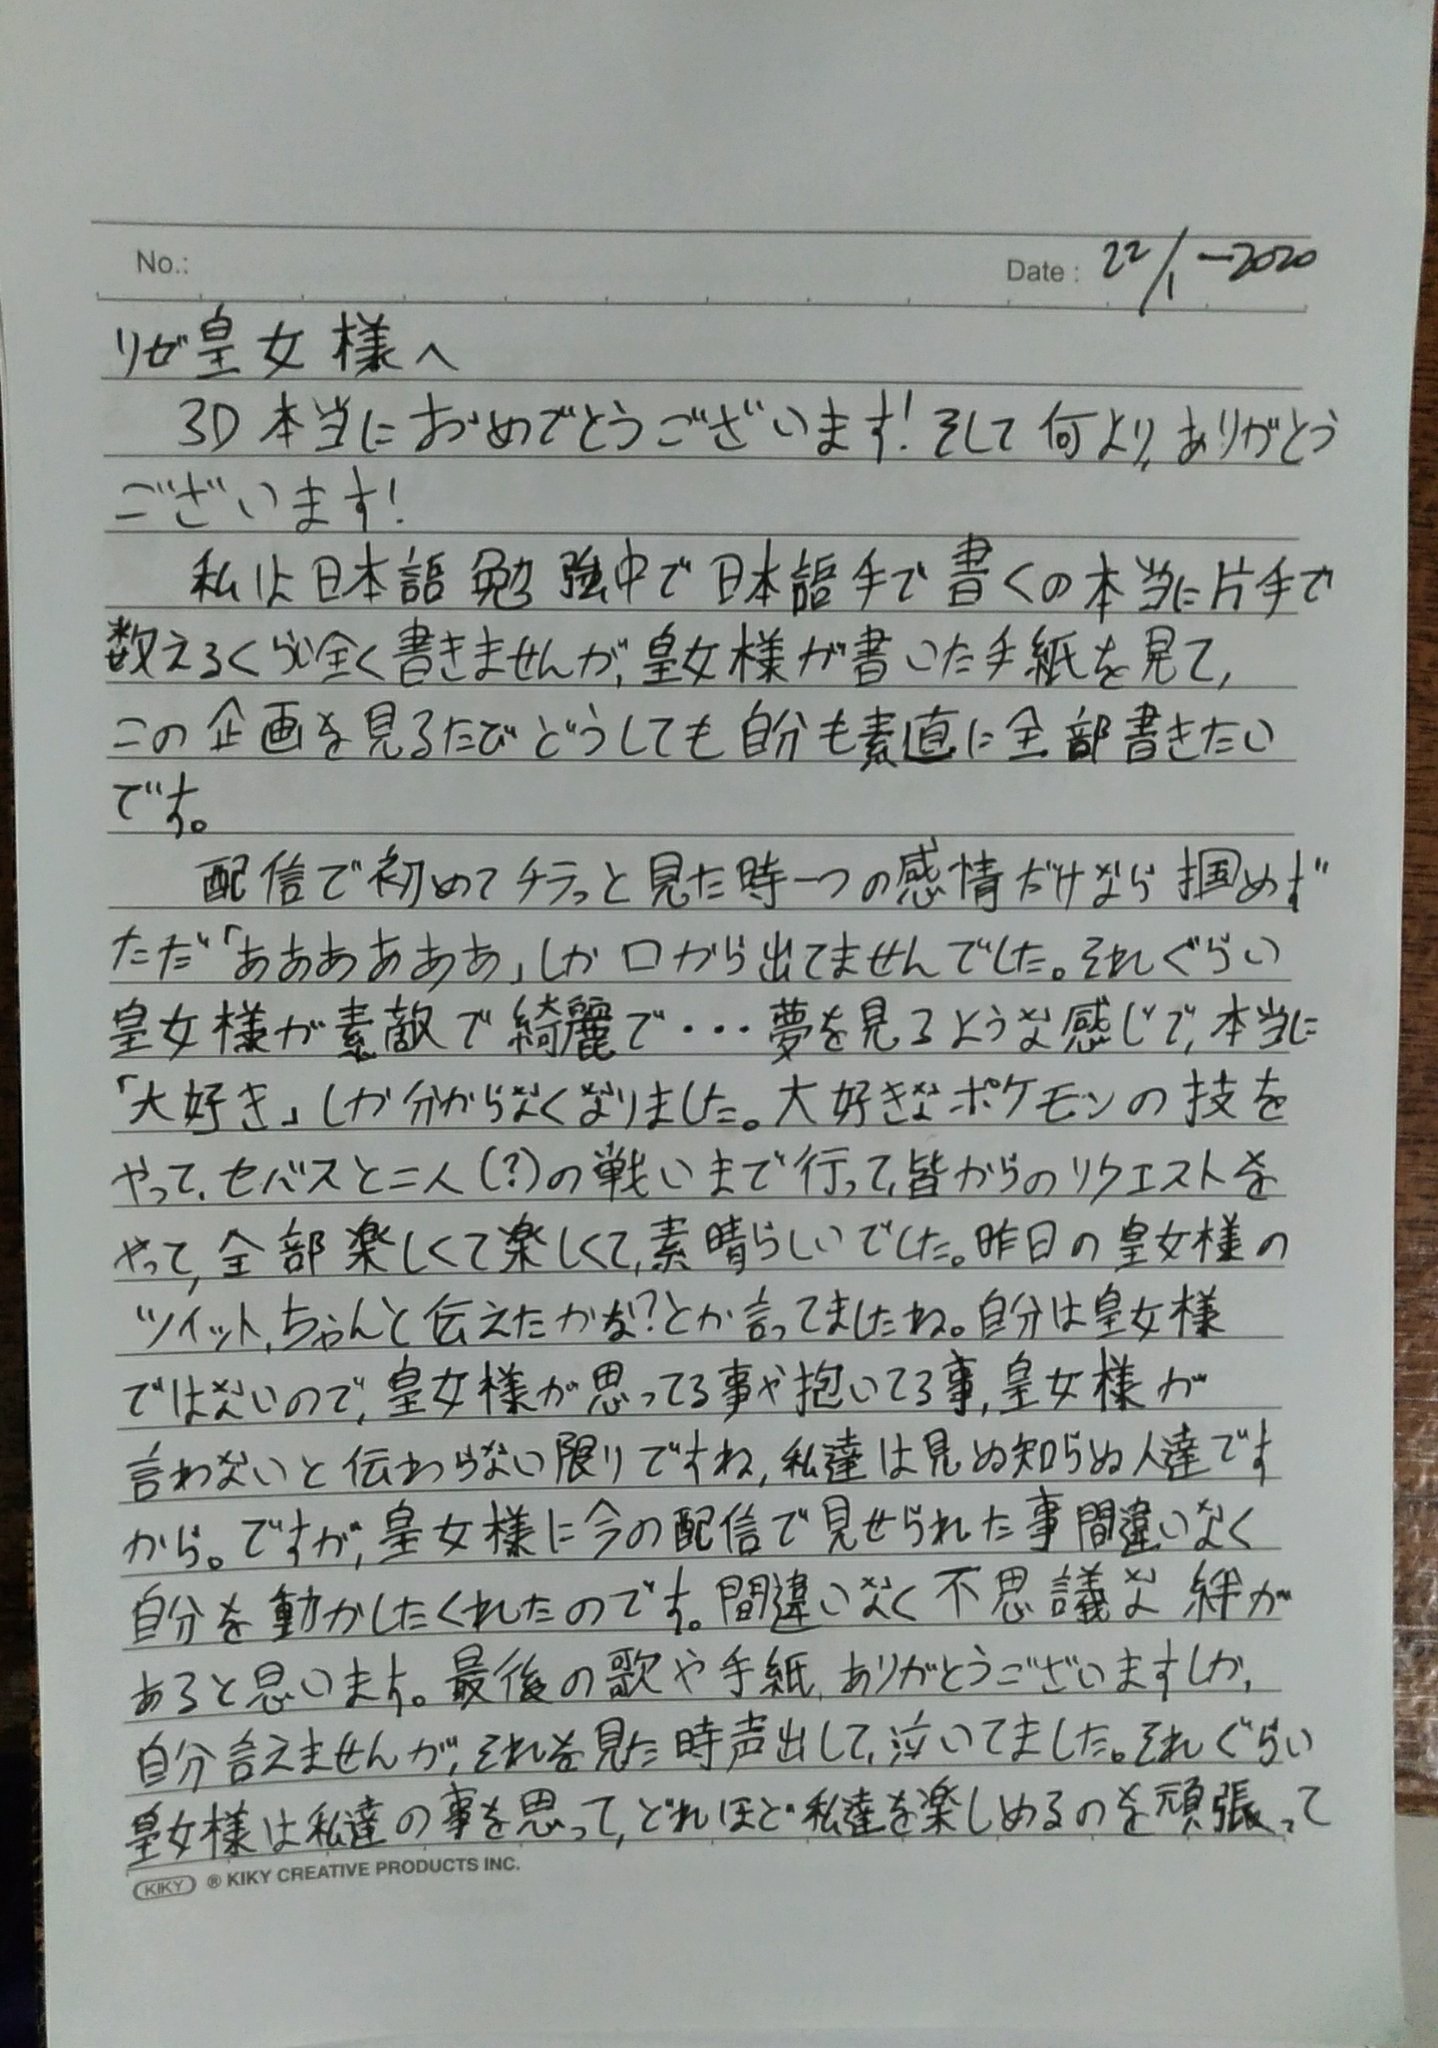 No.:
Date : 22/1-2020
リゼ皇女様へ
3D本当におめでとうございます!そして何より,ありがとう
ございます!
私は日本語勉強中で日本語手で書くの本当に片手で
数えるくらい全く書きませんが,皇女様が書いた手紙を見て,
この企画を見るたびどうしても自分も素直に全部書きたい
です。
配信で初めてチラっと見た時一つの感情だけなら掴めず
ただ「ああああああ」しか口から出てませんでした。それぐらい
皇女様が素敵で綺麗で・・・夢を見るような感じで,本当に
「大好き」しか分からなくなりました。大好きなポケモンの技を
やって,セバスと二人(?)の戦いまで行って,皆からのリクエストを
やって,全部楽しくて楽しくて,素晴らしいでした。昨日の皇女様の
ツイット,ちゃんと伝えたかな?とか言ってましたね。自分は皇女様
ではないので,皇女様が思ってる事や抱いてる事,皇女様が
言わないと伝わらない限りですね,私達は見ぬ知らぬ人達です
から。ですが,皇女様に今の配信で見せられた事間違いなく
自分を動かしたくれたのです。間違いなく不思議な絆が
あると思います。最後の歌や手紙,ありがとうございますしか,
自分言えませんが,それを見た時声出して,泣いてました。それぐらい
皇女様は私達の事を思って,どれほど私達を楽しめるのを頑張って
KIKY ® KIKY CREATIVE PRODUCTS INC.